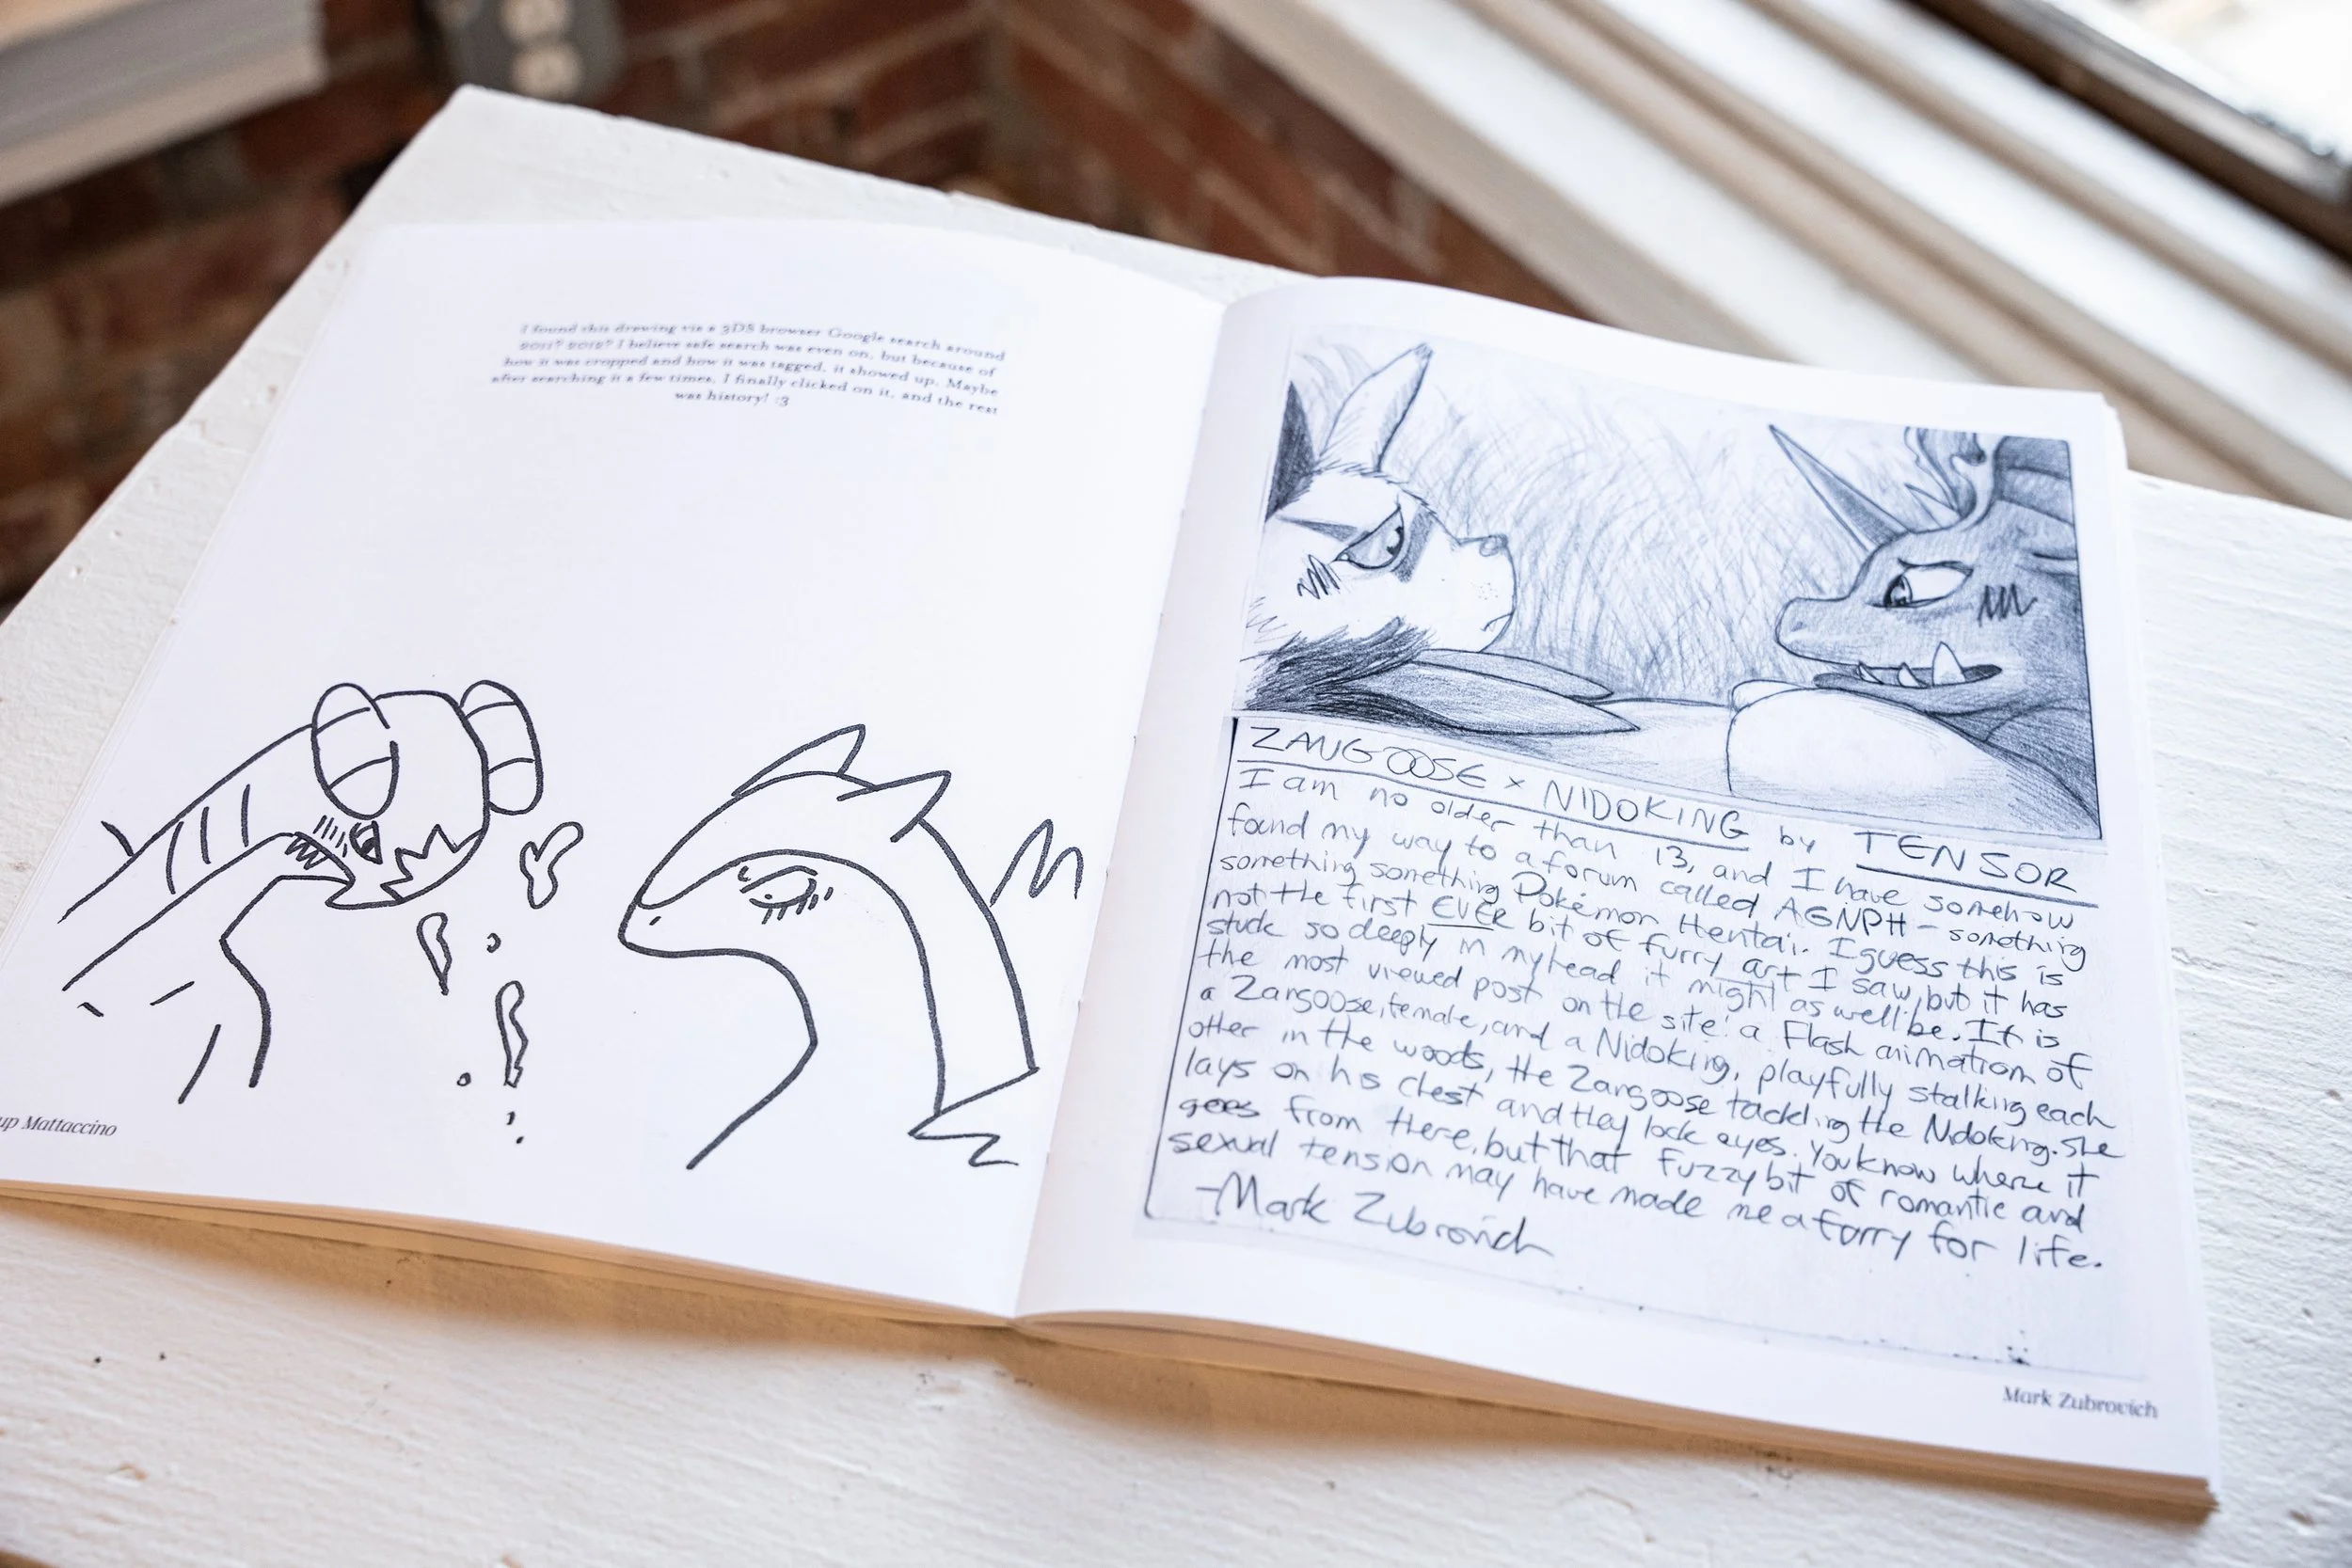 I found this drawing via a 3DS browser Google search around
2011? 2012? I believe safe search was even on, but because of
how it was cropped and how it was tagged, it showed up. Maybe
after searching it a few times, I finally clicked on it, and the rest
was history! :3
up Mattaccino
ZANGOOSE x NIDOKING by TENSOR
I am no older than 13, and I have somehow
found my way to a forum called AGNPH - something
something something Pokémon Hentai. I guess this is
not the first EVER bit of furry art I saw, but it has
stuck so deeply in my head it might as well be. It is
the most viewed post on the site: a Flash animation of
a Zangoose, female, and a Nidoking, playfully stalking each
other in the woods, the Zangoose tackling the Nidoking. She
lays on his chest and they lock eyes. You know where it
goes from there, but that fuzzy bit of romantic and
sexual tension may have made me a furry for life.
-Mark Zubrovich
Mark Zubrovich